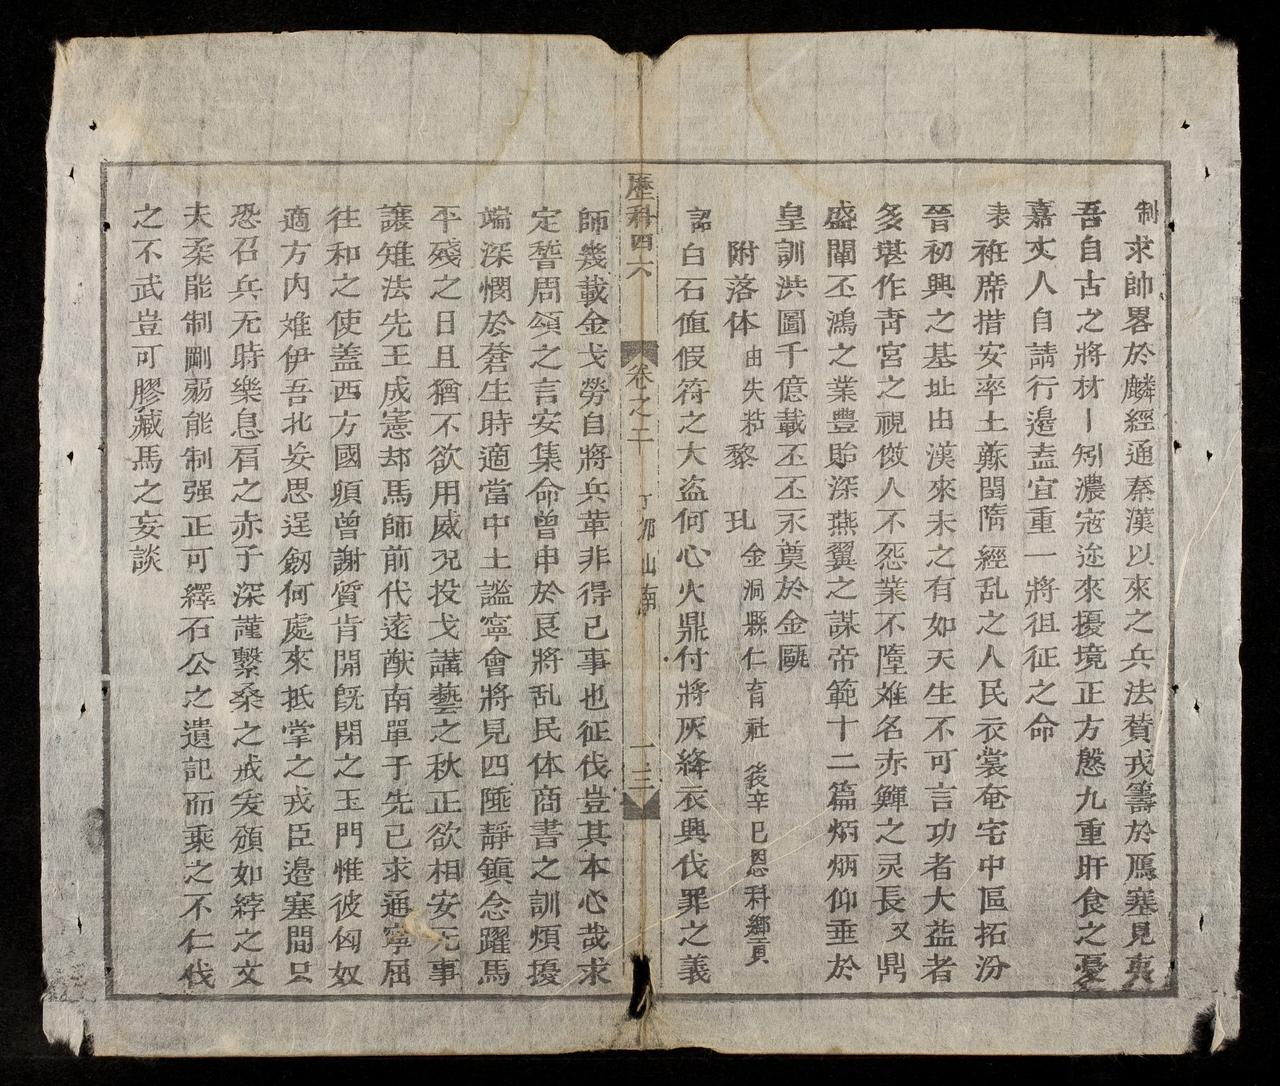 制求帥畧於麟經通秦漢以來之兵法賛戎籌於鴈塞見夷
吾自古之將材丨矧濃寇迩來擾境正方慇九重旰食之憂
嘉丈人自請行邉盍宜重一將徂征之命
表袵席措安率土蘇閏隋經乱之人民衣裳奄宅中區拓汾
晉初興之基址由漢來未之有如天生不可言功者大葢者
多堪作靑宮之視傚人不愆業不隳难名赤鯶之灵長又鼎
盛闡丕鴻之業豐貽深燕翼之謀帝範十二篇炳炳仰垂於
皇訓洪圖千億載丕丕永奠於金甌
附落体由失粘黎玌金洞縣仁育社後辛巳恩科鄉貢
詔白石値假符之大盗何心火鼎付將灰絳衣興伐罪之義
歷科四六 卷之二 丁卯山南 十三
師幾載金戈勞自將兵革非得已事也征伐豈其本心哉求
定誓周頌之言安集命曾申於良將乱民体商書之訓煩擾
端深憫於蒼生時適當中土謐寧會將見四陲靜鎮念躍馬
平殘之日且猶不欲用威况投戈講藝之秋正欲相安无事
讓雉法先王成憲却馬師前代逺猷南單于先已求通寧屈
往和之使盖西方國頭曾謝質肯開旣閉之玉門惟彼匈奴
適方内难伊吾北妄思逞劒何處來抵掌之戎臣邉塞間只
恐召兵无時樂息肩之赤子深謹繫桑之戒爰頒如綍之文
夫柔能制剛弱能制强正可繹石公之遺記而乘之不仁伐
之不武豈可膠藏馬之妄談